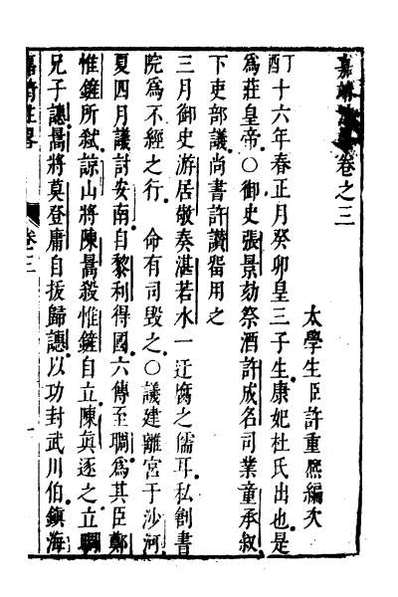 嘉靖注畧卷之三
太學生臣許重熈編次
丁酉十六年春正月癸卯皇三子生康妃杜氏出也是
爲莊皇帝○御史張景劾祭酒許成名司業童承叙
下吏部議尚書許讃畱用之
三月御史游居敬奏湛若水一迂腐之儒耳私創書
院爲不經之行　命有司毁之○議建離宫于沙河
夏四月議討安南自黎利得國六傳至晭爲其臣鄭
惟鏟所弑諒山將陳暠殺惟鏟自立陳眞逐之立晭
兄子譓暠將莫登庸自拔歸譓以功封武川伯鎮海
嘉靖注畧
卷三
一